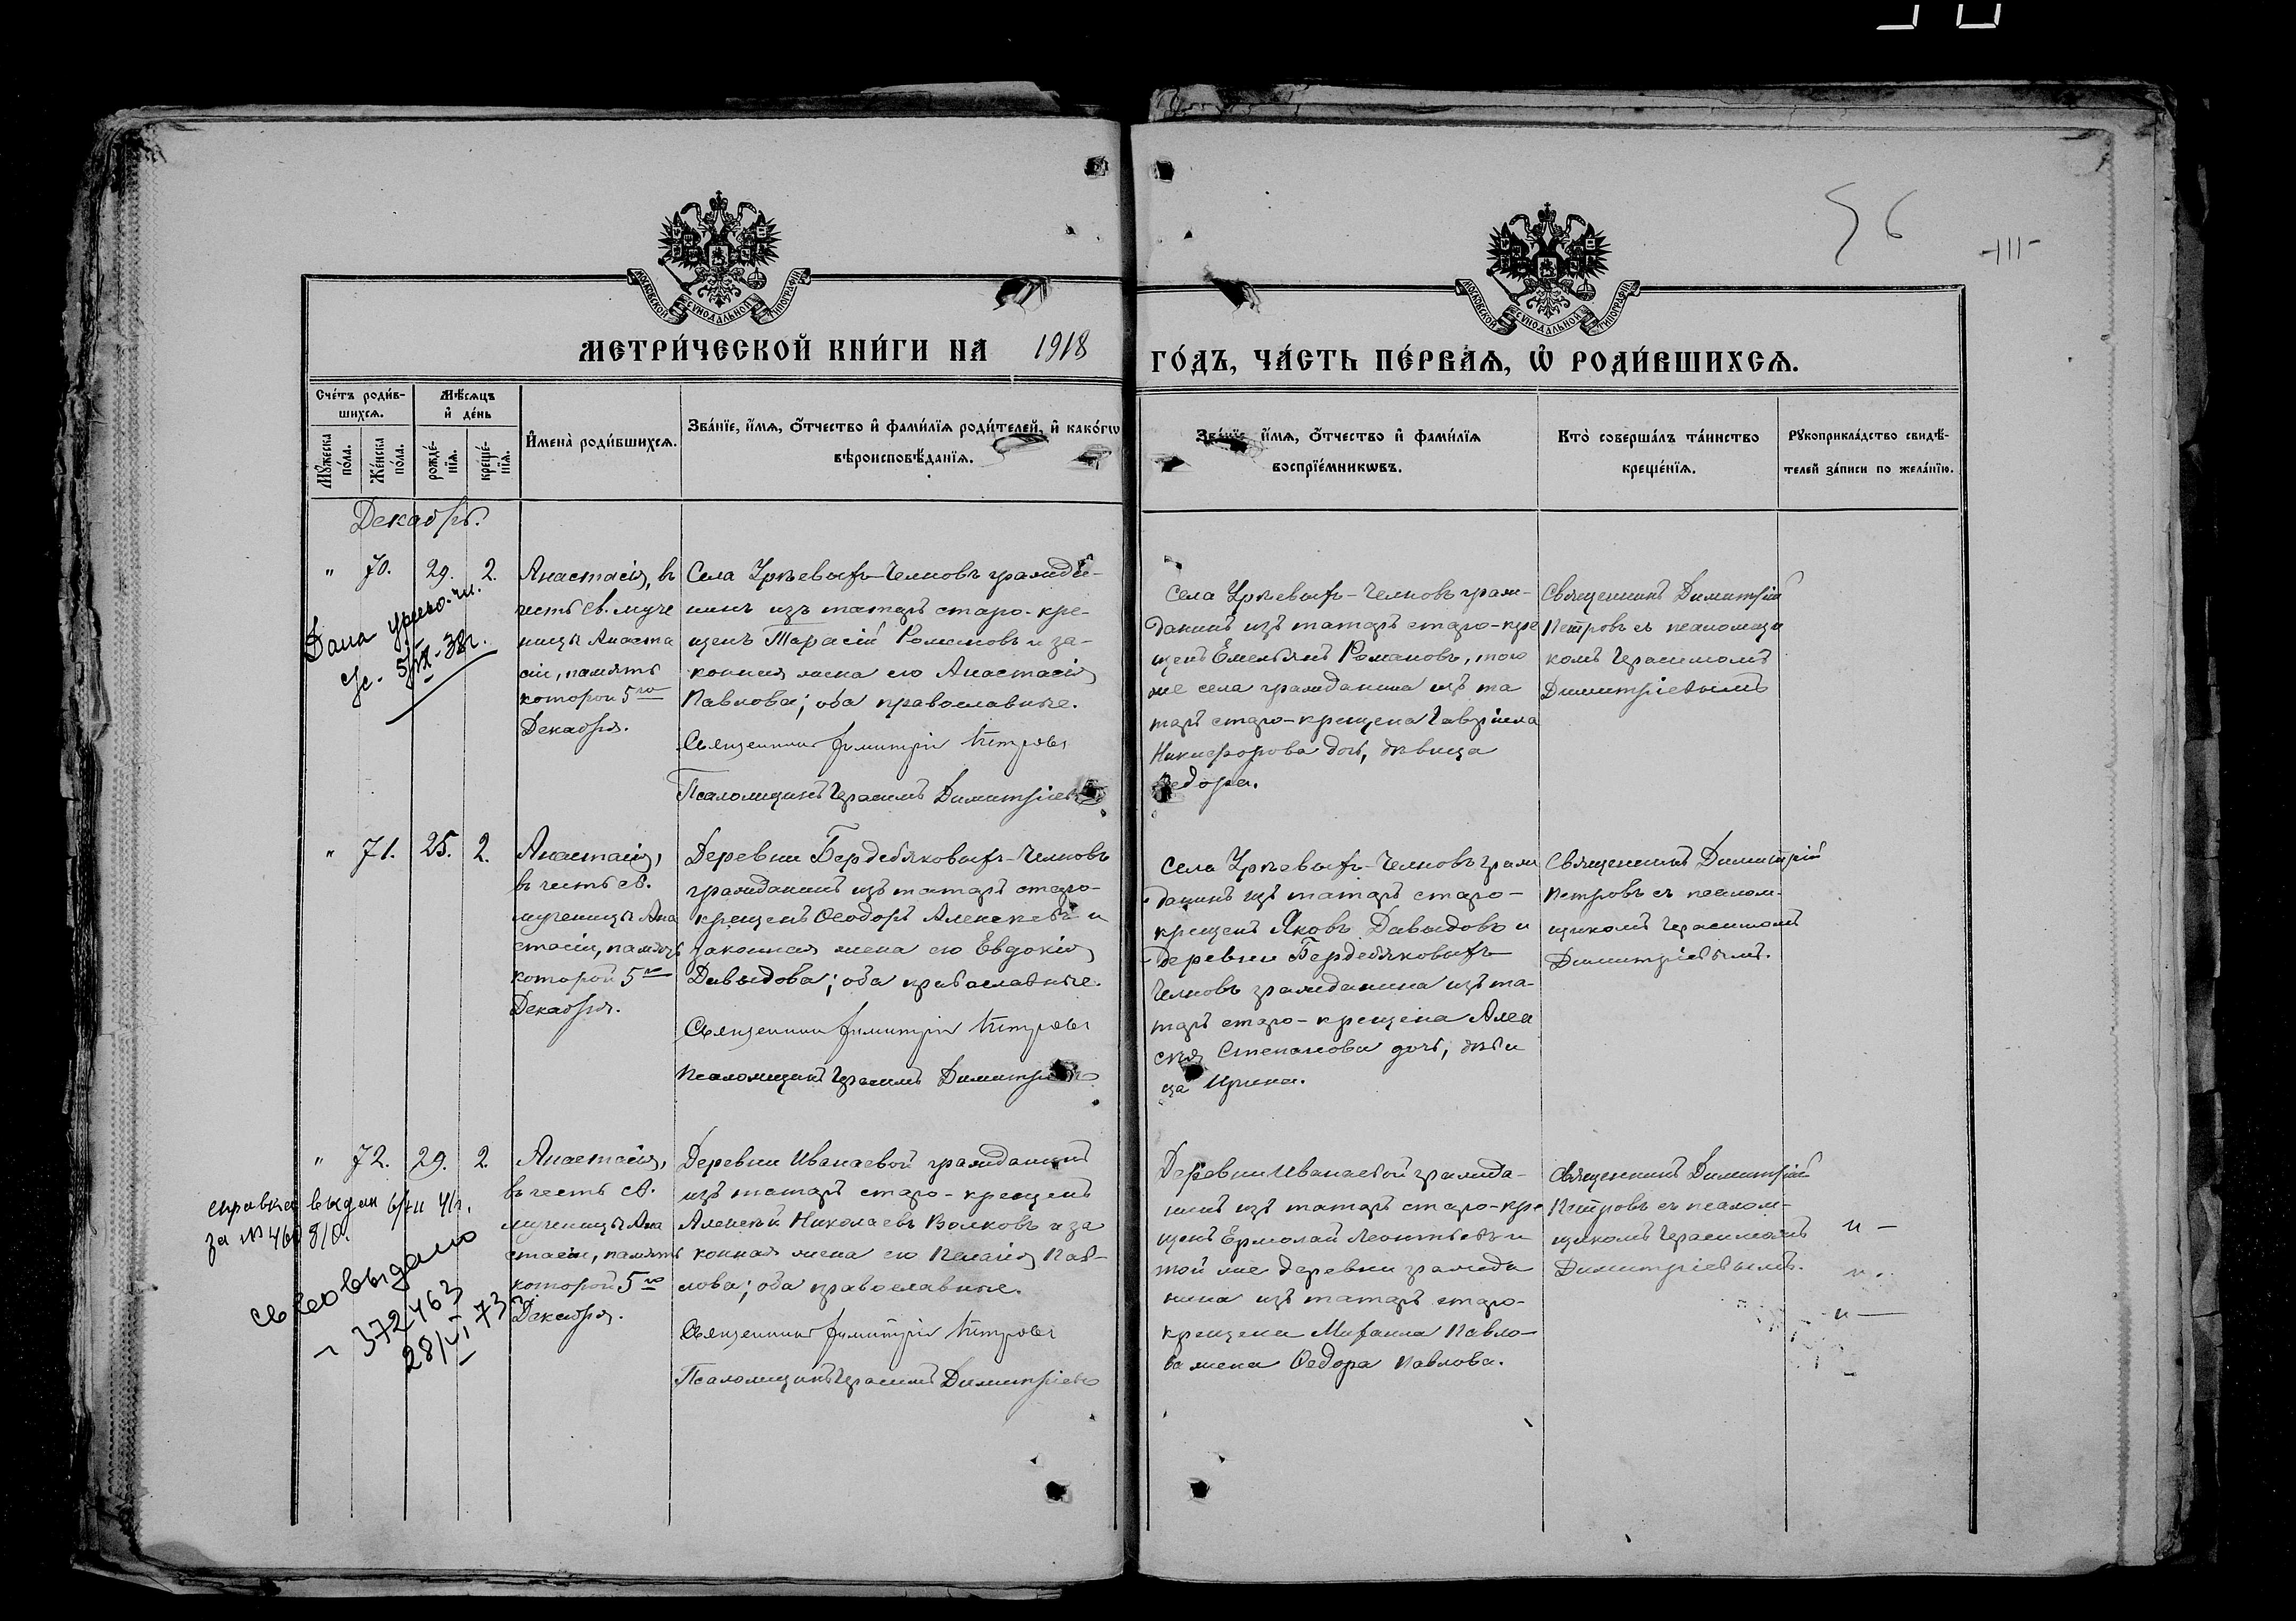 56
-111-
МОСКОВСКОЙ СѴНОДАЛЬНОЙ ТИПОГРАФІИ
МОСКОВСКОЙ СѴНОДАЛЬНОЙ ТИПОГРАФІИ
МЕТРИ́ЧЕСКОЙ КНИ́ГИ НА 1918
ГО́ДЪ, ЧА́СТЬ ПЕ́РВАѦ, Ѡ҆ РОДИ́ВШИХСѦ.
Сче́тъ роди́в-
шихсѧ.
Мꙋ́жеска по́ла.
Же́нска по́ла.
Мѣ́сѧцъ и҆ де́нь
рожде́-нїѧ.
креще́-нїѧ.
И҆мена̀ роди́вшихсѧ.
Зва́нїе, и҆́мѧ, ѻ҆́тчество и҆ фами́лїѧ роди́телей, и҆ како́гѡ
вѣроисповѣ́данїѧ.
Зва́нїе, и҆́мѧ, ѻ҆́тчество и҆ фами́лїѧ
воспрїе́мникѡвъ.
Кто̀ соверша́лъ та́инство
креще́нїѧ.
Рꙋкоприкла́дство свидѣ́-
телей за́писи по жела́нїю.
Декабрь.
" 70. 29. 2.
Анастасія, въ
честь св. муче
ницы Анаста
сіи, память
которой 5го
Декабря.
Села Урѣевыхъ-Челновъ гражда-
нинъ изъ татаръ старо-кре-
щенъ Тарасій Романовъ и за-
конная жена его Анастасія
Павлова; оба православные.
Священникъ Димитрій Петровъ
Псаломщикъ Герасимъ Димитріевъ
Села Урѣевыхъ-Челновъ граж-
данинъ изъ татаръ старо-кре
щенъ Емельянъ Романовъ, того
же села гражданина изъ та
таръ старо-крещена Гавріила
Никифорова дочь, дѣвица
Ѳедора.
Священникъ Димитрій
Петровъ съ псаломщи
комъ Герасимомъ
Димитріевымъ
Дана
с/с. 5/IX-38г.
" 71. 25. 2.
Анастасія,
въ честь св.
мученицы Ана
стасіи, память
которой 5го
Декабря.
Деревни Бердебяковыхъ-Челновъ
гражданинъ изъ татаръ старо-
крещенъ Ѳеодоръ Алексѣевъ и
законная жена его Евдокія
Давыдова; оба православные.
Священникъ Димитрій Петровъ
Псаломщикъ Герасимъ Димитріевъ
Села Урѣевыхъ-Челновъ граж
данинъ изъ татаръ старо-
крещенъ Яковъ Давыдовъ и
деревни Бердебяковыхъ
Челновъ гражданина изъ та-
таръ старо-крещена Алек
сѣя Степанова дочь, дѣви
ца Ирина.
Священникъ Димитрій
Петровъ съ псалом-
щикомъ Герасимомъ
Димитріевымъ.
" 72. 29. 2.
Анастасія,
въ честь св.
мученицы Ана
стасіи, память
которой 5го
Декабря.
Деревни Иванаевой гражданинъ
изъ татаръ старо-крещенъ
Алексѣй Николаевъ Волковъ и за
конная жена его Пелагія Пав-
лова; оба православные.
Священникъ Димитрій Петровъ
Псаломщикъ Герасимъ Димитріевъ
Деревни Иванаевой гражда-
нинъ изъ татаръ старо-кре
щенъ Ермолай Леонтьевъ и
той же деревни гражда
нина изъ татаръ старо-
крещена Михаила Павло-
ва жена Ѳедора Павлова.
Священникъ Димитрій
Петровъ съ псалом-
щикомъ Герасимомъ
Димитріевымъ.
справка выдан
за №
св-во выдано
372463
28/VI 73